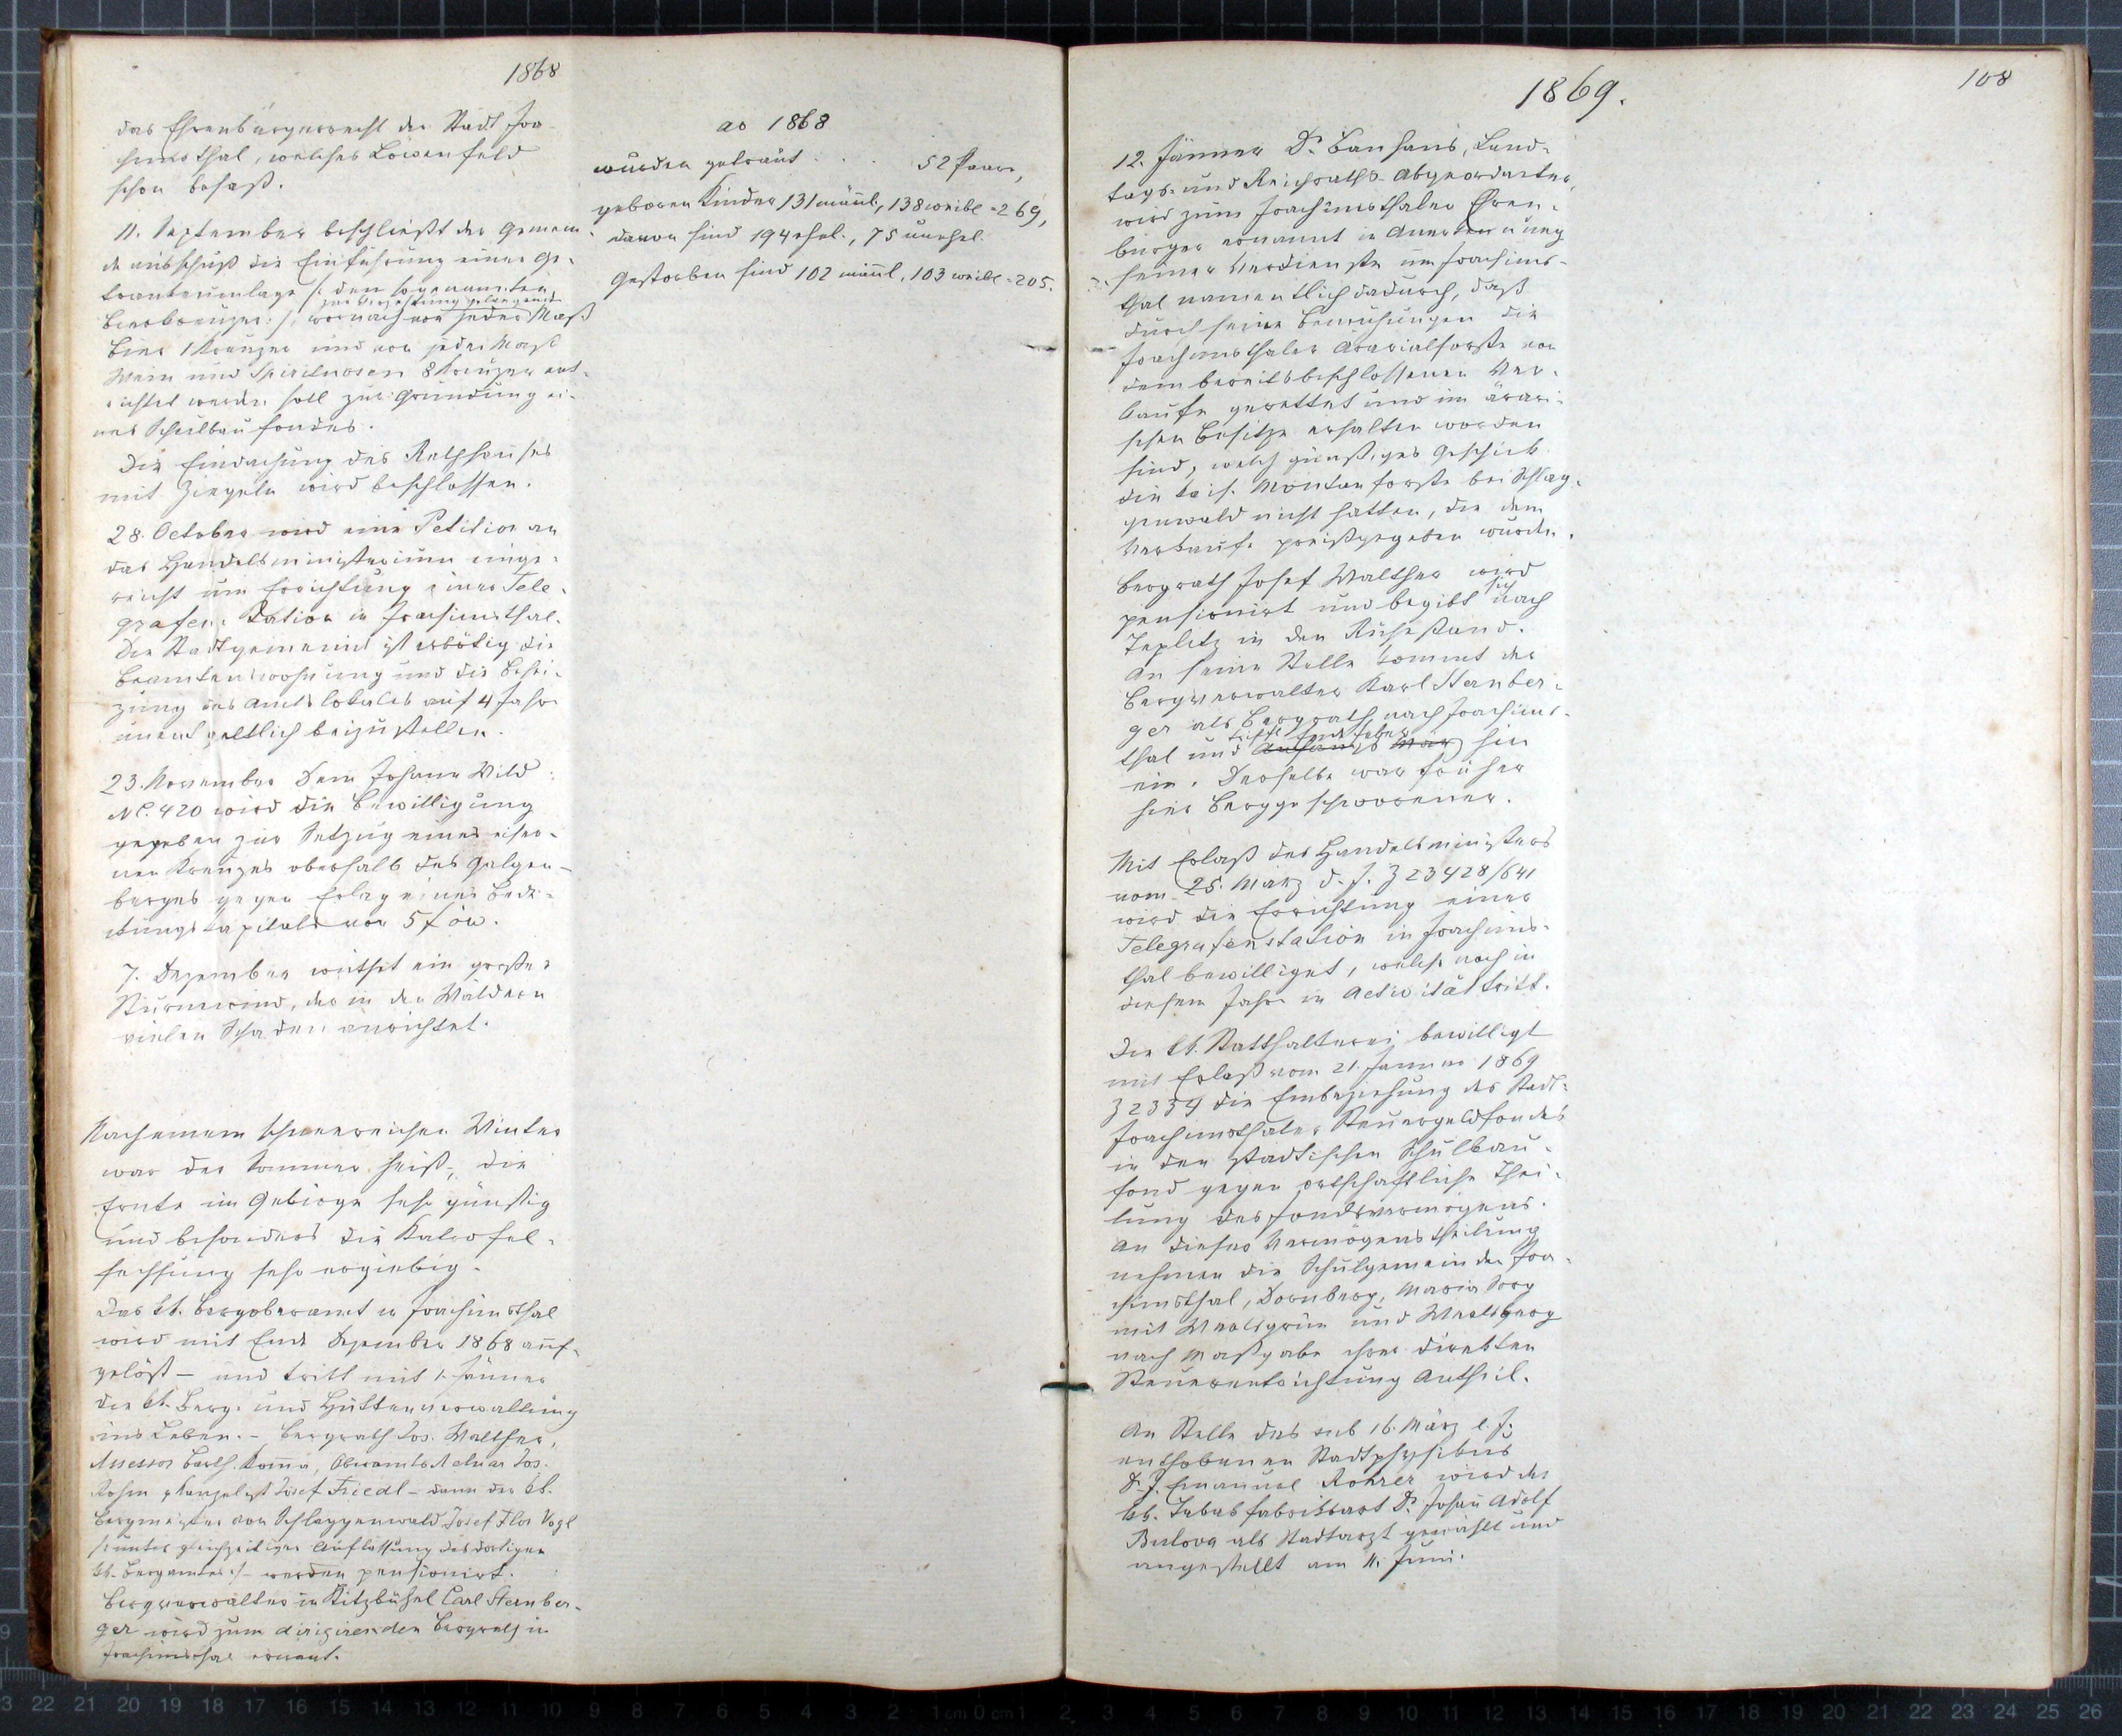 1868
das Ehrenbürgerrecht der Stadt Joa-
chimsthal, welches Löwenfeld
schon besaß.
11. September beschließt der Gemein-
deausschuß die Einführung einer Ge-
tränkeumlage /: den sogenannten
zur Verzehrung gelangende
Bierkreuzer :/, wornach von jeder Maß
Bier 1 Kreuzer und von jeder Maß
Wein und Spirituosen 8 Kreuzer ent-
richtet werden soll zur Gründung ei-
nes Schulbaufondes.
Die Eindachung des Rathhauses
mit Ziegeln wird beschlossen.
28. October wird eine Petition an
das Handelsministerium einge-
reicht um Errichtung einer Tele-
grafenstation in Joachimsthal.
Die Stadtgemeinde ist erbötig die
Beamtenwohnung und die Behei-
zung des Amtslokales auf 4 Jahre
unentgeltlich beizustellen.
23. November Dem Johann Wild
NC. 420 wird die Bewilligung
gegeben zur Setzung eines eiser-
nen Kreuzes oberhalb des Galgen-
berges gegen Erlag eines
kapitals von 5 f öw.
7. Dezember wüthet ein großer
Sturmwind, der in den Wäldern
vielen Schaden anrichtet.
Nach einem schneereichen Winter
war der Sommer heiß, die
Ernte im Gebirge sehr günstig
und besonders die Kartofel-
fechsung sehr ergiebig.
Das kk. Bergoberamt in Joachimsthal
wird mit Ende Dezember 1868 auf-
gelöst – und tritt mit 1. Jänner
die kk. Berg- und Hüttenverwaltung
ins Leben. – Bergrath Jos. Walther,
Assessor Barth. Koma, Oberamts Actuar Jos.
Kanzelist Josef Friedl – dann der kk.
Bergmeister von Schlaggenwald Josef Flor. Vogl
/: unter gleichzeitiger Auflassung des dortigen
kk. Bergamtes :/ – werden pensionirt.
Bergverwalter in Kitzbühel Carl Sternber-
ger wird zum dirigirenden Bergrath in
Joachimsthal ernant.
ao 1868
wurden getraut . . . 52 Paare,
geboren Kinder 131 männl., 138 weibl = 269,
davon sind 194 ehel., 75 unehel.
Gestorben sind 102 männl., 103 weibl = 205.
108
1869.
12. Jänner Dr. Banhans, Land-
tags- und Reichsraths-Abgeordneter,
wird zum Joachimsthaler Ehren-
bürger ernannt in Anerkennung
seiner Verdienste um Joachims-
thal namentlich dadurch, daß
durch seine Bemühungen die
Joachimsthaler Ärarialforste von
dem bereits beschlossenen Ver-
kaufe gerettet und im ärari-
schen Besitze erhalten worden
sind, welch günstiges Geschick
die kais. Montanforste bei Schlag-
genwald nicht hatten, die dem
Verkaufe preisgegeben wurden.
Bergrath Josef Walther wird
pensionirt und begibt sich nach
Teplitz in den Ruhestand.
An seine Stelle kommt der
Bergverwalter Karl Sternber-
ger als Bergrath nach Joachims-
thal und Anfangs März hier
ein. Derselbe war früher
hier Berggeschworener.
Mit Erlaß des Handelsministers
vom 25. März d. J. Z 23428/641
wird die Errichtung einer
Telegrafenstation in Joachims-
thal bewilliget, welche noch in
diesem Jahre in Activität tritt.
Die kk. Statthalterei bewilligt
mit Erlaß vom 21. Jänner 1869
Z 2334 die Einbeziehung des Stadt-
Joachimsthaler Steuergeldfondes
in den städtischen Schulbau-
fond gegen ortschaftliche Thei-
lung des Fondsvermögens.
An dieser Vermögenstheilung
nehmen die Schulgemeinden Joa-
chimsthal, Dornberg, Maria Sorg
mit Werlsgrün und Werlsberg
nach Maßgabe ihrer direkten
Steuerentrichtung Antheil.
An Stelle des sub 16. März l. J.
enthobenen Stadtphysikus
Dr. J. Emanuel Rohrer wird der
kk. Tabakfabriksarzt Dr. Johañ Adolf
Bulova als Stadtarzt gewählt und
angestellt am 11. Juni.